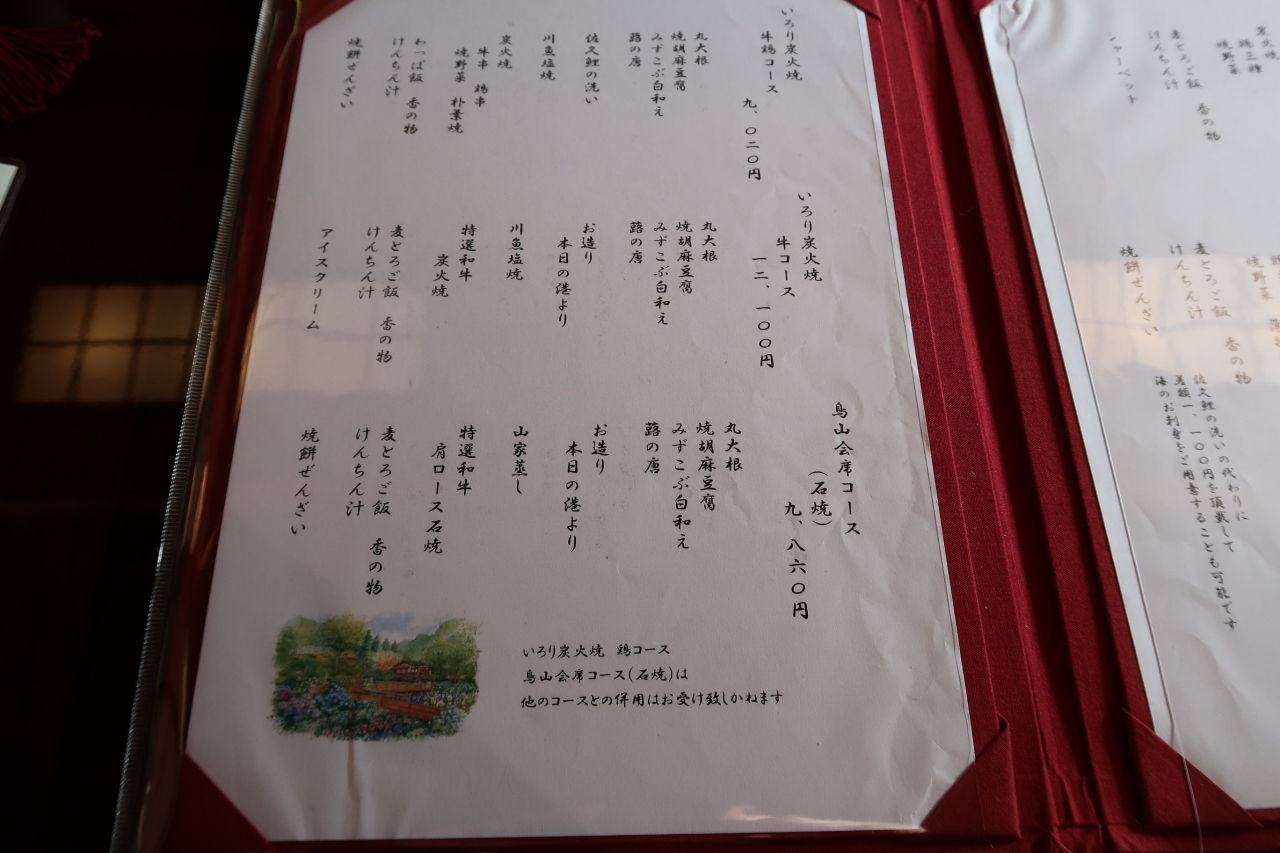 いろり炭火焼
牛鶏コース
九、〇二〇円
丸大根
焼胡麻豆腐
みずこぶ白和え
蕗の唐
佐久鯉の洗い
川魚塩焼
炭火焼
牛串 鶏串
焼野菜 朴葉焼
わっぱ飯 香の物
けんちん汁
焼餅ぜんざい
いろり炭火焼
牛コース
一二、一〇〇円
丸大根
焼胡麻豆腐
みずこぶ白和え
蕗の唐
お造り
本日の港より
川魚塩焼
特選和牛
炭火焼
麦とろご飯 香の物
けんちん汁
アイスクリーム
鳥山会席コース
(石焼)
九、八六〇円
丸大根
焼胡麻豆腐
みずこぶ白和え
蕗の唐
お造り
本日の港より
山家蒸し
特選和牛
肩ロース石焼
麦とろご飯 香の物
けんちん汁
焼餅ぜんざい
いろり炭火焼 鶏コース
鳥山会席コース(石焼)は
他のコースとの併用はお受け致しかねます
炭火焼
鶏三種
焼野菜
麦とろご飯 香の物
けんちん汁
シャーベット
焼野菜
麦とろご飯 香の物
けんちん汁
焼餅ぜんざい
佐久鯉の洗いの代わりに
差額一、一〇〇円を頂戴して
海のお刺身をご用意することも可能です